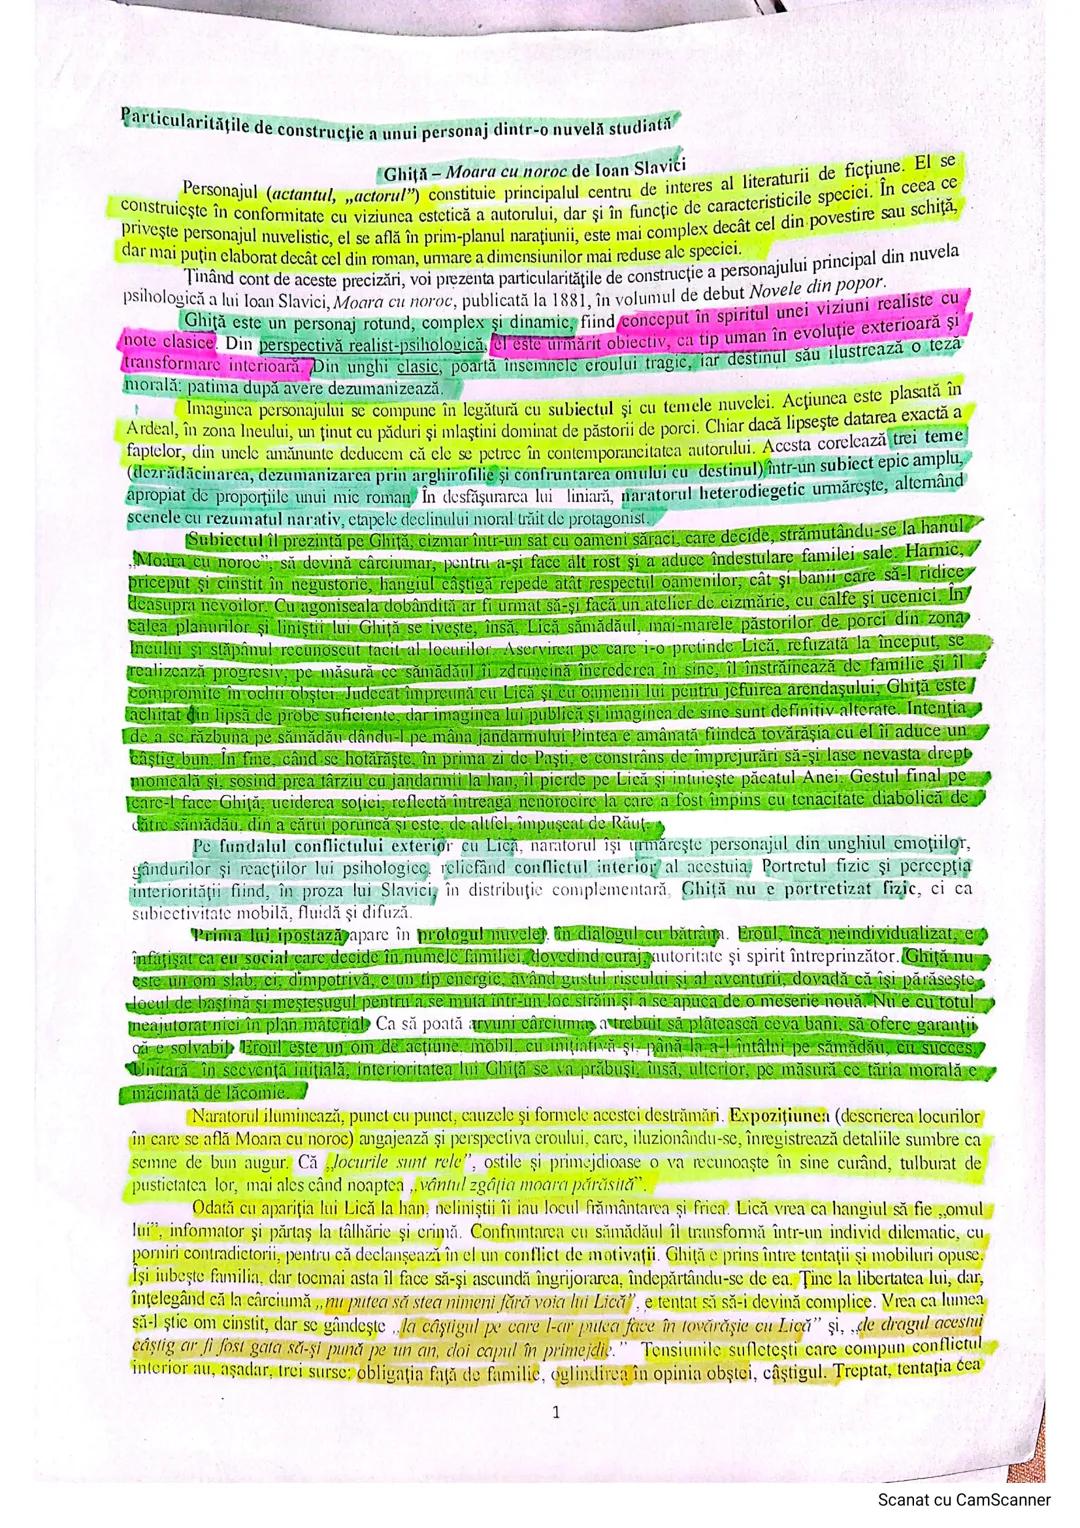 Particularitățile de construcție a unui personaj dintr-o nuvelă studiată
Ghiță – Moara cu noroc de Ioan Slavici
Personajul (actantul, „actorul”) constituie principalul centru de interes al literaturii de ficțiune. El se
construiește în conformitate cu viziunea estetică a autorului, dar și în funcție de caracteristicile speciei. În ceea ce
privește personajul nuvelistic, el se află în prim-planul narațiunii, este mai complex decât cel din povestire sau schiță,
dar mai puțin elaborat decât cel din roman, urmare a dimensiunilor mai reduse ale speciei.
Ținând cont de aceste precizări, voi prezenta particularitățile de construcție a personajului principal din nuvela
psihologică a lui Ioan Slavici, Moara cu noroc, publicată la 1881, în volumul de debut Novele din popor.
Ghiță este un personaj rotund, complex și dinamic, fiind conceput în spiritul unei viziuni realiste cu
note clasice. Din perspectivă realist-psihologică, el este urmărit obiectiv, ca tip uman în evoluție exterioară și
transformare interioară. Din unghi clasic, poartă însemnele eroului tragic, iar destinul său ilustrează o teză
morală: patima după avere dezumanizează.
Imaginea personajului se compune în legătură cu subiectul și cu temele nuvelei. Acțiunea este plasată în
Ardeal, în zona Ineului, un ținut cu păduri și mlaștini dominat de păstorii de porci. Chiar dacă lipsește datarea exactă a
faptelor, din unele amănunte deducem că ele se petrec în contemporancitatea autorului. Acesta corelează trei teme
(dezrădăcinarea, dezumanizarea prin arghirofilie și confruntarea omului cu destinul) într-un subiect epic amplu,
apropiat de proporțiile unui mic roman. În desfășurarea lui liniară, naratorul heterodiegetic urmărește, alternând
scenele cu rezumatul narativ, etapele declinului moral trăit de protagonist.
Subiectul îl prezintă pe Ghiță, cizmar într-un sat cu oameni săraci, care decide, strămutându-se la hanul
„Moara cu noroc”, să devină cârciumar, pentru a-și face alt rost și a aduce îndestulare familei sale. Harnic,
priceput și cinstit în negustorie, hangiul câștigă repede atât respectul oamenilor, cât și banii care să-l ridice
deasupra nevoilor. Cu agoniseala dobândită ar fi urmat să-și facă un atelier de cizmărie, cu calfe și ucenici. În
calea planurilor și liniștii lui Ghiță se ivește, însă, Lică sămădăul, mai-marele păstorilor de porci din zona
Ineului și stăpânul recunoscut tacit al locurilor. Aservirea pe care i-o pretinde Lică, refuzată la început, se
realizează progresiv, pe măsură ce sămădăul îi zdruncină încrederea în sine, îl înstrăinează de familie și îl
compromite în ochii obștei. Judecat împreună cu Lică și cu oamenii lui pentru jefuirea arendașului, Ghiță este
achitat din lipsă de probe suficiente, dar imaginea lui publică și imaginea de sine sunt definitiv alterate. Intenția
de a se răzbuna pe sămădău dându-l pe mâna jandarmului Pintea e amânată fiindcă tovărășia cu el îi aduce un
câștig bun. În fine, când se hotărăște, în prima zi de Paști, e constrâns de împrejurări să-și lase nevasta drept
momeală și, sosind prea târziu cu jandarmii la han, îl pierde pe Lică și intuiește păcatul Anei. Gestul final pe
care-l face Ghiță, uciderea soției, reflectă întreaga nenorocire la care a fost împins cu tenacitate diabolică de
către sămădău, din a cărui poruncă și este, de altfel, împușcat de Răuț.
Pe fundalul conflictului exterior cu Lică, naratorul își urmărește personajul din unghiul emoțiilor,
gândurilor și reacțiilor lui psihologice, reliefând conflictul interior al acestuia. Portretul fizic și percepția
interiorității fiind, în proza lui Slavici, în distribuție complementară, Ghiță nu e portretizat fizic, ci ca
subiectivitate mobilă, fluidă și difuză.
Prima lui ipostază apare în prologul nuvelei, în dialogul cu bătrâna. Eroul, încă neindividualizat, e
înfățișat ca eu social care decide în numele familiei, dovedind curaj, autoritate și spirit întreprinzător. Ghiță nu
este un om slab, ci, dimpotrivă, e un tip energic, având gustul riscului și al aventurii, dovadă că își părăsește
locul de baștină și meșteșugul pentru a se muta într-un loc străin și a se apuca de o meserie nouă. Nu e cu totul
neajutorat nici în plan material. Ca să poată arvuni cârciuma, a trebuit să plătească ceva bani, să ofere garanții
că e solvabil. Eroul este un om de acțiune, mobil, cu inițiativă și, până la a-l întâlni pe sămădău, cu succes.
Unitară în secvența inițială, interioritatea lui Ghiță se va prăbuși, însă, ulterior, pe măsură ce tăria morală e
măcinată de lăcomie.
Naratorul iluminează, punct cu punct, cauzele și formele acestei destrămări. Expozițiunea (descrierea locurilor
în care se află Moara cu noroc) angajează și perspectiva eroului, care, iluzionându-se, înregistrează detaliile sumbre ca
semne de bun augur. Că „locurile sunt rele”, ostile și primejdioase o va recunoaște în sine curând, tulburat de
pustietatea lor, mai ales când noaptea „vântul zgâția moara părăsită”.
Odată cu apariția lui Lică la han, neliniștii îi iau locul frământarea și frica. Lică vrea ca hangiul să fie „omul
lui”, informator și părtaș la tâlhărie și crimă. Confruntarea cu sămădăul îl transformă într-un individ dilematic, cu
porniri contradictorii, pentru că declanșează în el un conflict de motivații. Ghiță e prins între tentații și mobiluri opuse.
Își iubește familia, dar tocmai asta îl face să-și ascundă îngrijorarea, îndepărtându-se de ea. Ține la libertatea lui, dar,
înțelegând că la cârciumă „nu putea să stea nimeni fără voia lui Lică”, e tentat să să-i devină complice. Vrea ca lumea
să-l știe om cinstit, dar se gândește „la câștigul pe care l-ar putea face în tovărășie cu Lică” și, „de dragul acestui
câștig ar fi fost gata să-și pună pe un an, doi capul în primejdie.” Tensiunile sufletești care compun conflictul
interior au, așadar, trei surse: obligația față de familie, oglindirea în opinia obștei, câștigul. Treptat, tentația cea
1
Scanat cu CamScanner